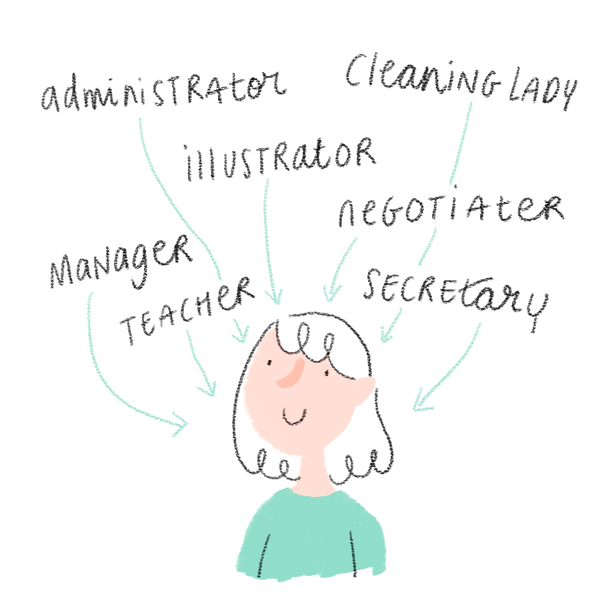 administrator
cleaning lady
illustrator
negotiater
manager
teacher
secretary